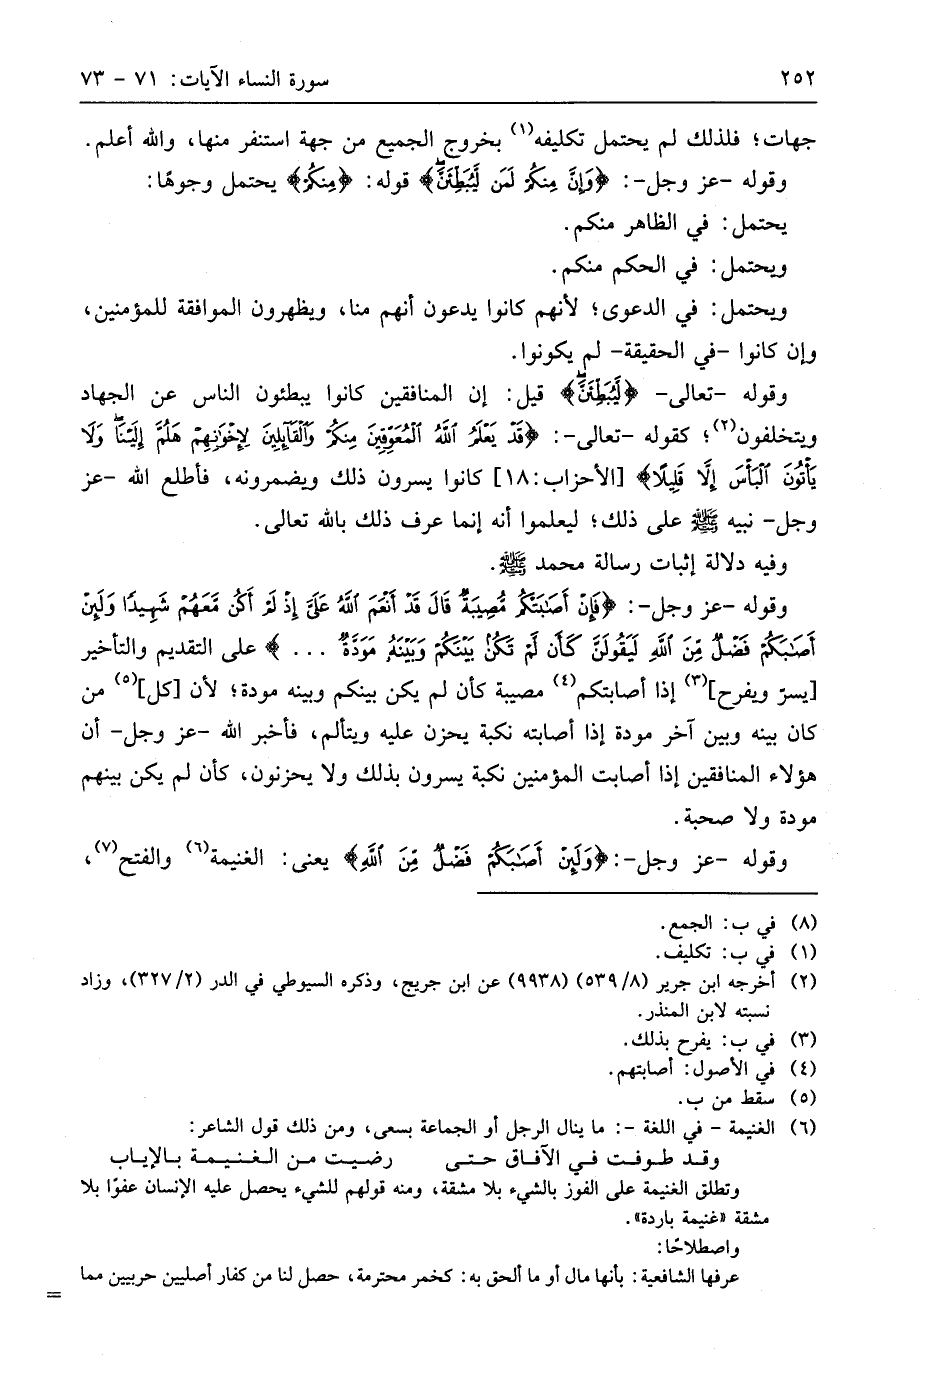 ٢٥٢ سورة النساء الآيات: ٧١ - ٧٣
جهات؛ فلذلك لم يحتمل تكليفه(١) بخروج الجميع من جهة استنفر منها، والله أعلم.
وقوله -عز وجل-: ﴿وَإِنَّ مِنكُمْ لَمَن لَّيُبَطِّئَنَّۖ﴾ قوله: ﴿مِنكُمْ﴾ يحتمل وجوهًا:
يحتمل: في الظاهر منكم.
ويحتمل: في الحكم منكم.
ويحتمل: في الدعوى؛ لأنهم كانوا يدعون أنهم منا، ويظهرون الموافقة للمؤمنين،
وإن كانوا -في الحقيقة- لم يكونوا.
وقوله -تعالى- ﴿لَّيُبَطِّئَنَّۖ﴾ قيل: إن المنافقين كانوا يبطئون الناس عن الجهاد
ويتخلفون(٢)؛ كقوله -تعالى-: ﴿قَدْ يَعْلَمُ ٱللَّهُ ٱلْمُعَوِّقِينَ مِنكُمْ وَٱلْقَآئِلِينَ لِإِخْوَٰنِهِمْ هَلُمَّ إِلَيْنَاۖ وَلَا
يَأْتُونَ ٱلْبَأْسَ إِلَّا قَلِيلًا﴾ [الأحزاب:١٨] كانوا يسرون ذلك ويضمرونه، فأطلع الله -عز
وجل- نبيه ﷺ على ذلك؛ ليعلموا أنه إنما عرف ذلك بالله تعالى.
وفيه دلالة إثبات رسالة محمد ﷺ.
وقوله -عز وجل-: ﴿فَإِنْ أَصَٰبَتْكُم مُّصِيبَةٌ قَالَ قَدْ أَنْعَمَ ٱللَّهُ عَلَىَّ إِذْ لَمْ أَكُن مَّعَهُمْ شَهِيدًا وَلَئِنْ
أَصَٰبَكُمْ فَضْلٌ مِّنَ ٱللَّهِ لَيَقُولَنَّ كَأَن لَّمْ تَكُنۢ بَيْنَكُمْ وَبَيْنَهُۥ مَوَدَّةٌ ... ﴾ على التقديم والتأخير
[يسرّ ويفرح](٣) إذا أصابتكم(٤) مصيبة كأن لم يكن بينكم وبينه مودة؛ لأن [كل](٥) من
كان بينه وبين آخر مودة إذا أصابته نكبة يحزن عليه ويتألم، فأخبر الله -عز وجل- أن
هؤلاء المنافقين إذا أصابت المؤمنين نكبة يسرون بذلك ولا يحزنون، كأن لم يكن بينهم
مودة ولا صحبة.
وقوله -عز وجل-: ﴿وَلَئِنْ أَصَٰبَكُمْ فَضْلٌ مِّنَ ٱللَّهِ﴾ يعنى: الغنيمة(٦) والفتح(٧)،
(٨) في ب: الجمع.
(١) في ب: تكليف.
(٢) أخرجه ابن جرير (٥٣٩/٨) (٩٩٣٨) عن ابن جريج، وذكره السيوطي في الدر (٣٢٧/٢)، وزاد
نسبته لابن المنذر.
(٣) في ب: يفرح بذلك.
(٤) في الأصول: أصابتهم.
(٥) سقط من ب.
(٦) الغنيمة - في اللغة -: ما ينال الرجل أو الجماعة بسعى، ومن ذلك قول الشاعر:
وقد طوفت في الآفاق حتى رضيت من الغنيمة بالإياب
وتطلق الغنيمة على الفوز بالشيء بلا مشقة، ومنه قولهم للشيء يحصل عليه الإنسان عفوًا بلا
مشقة «غنيمة باردة».
واصطلاحًا:
عرفها الشافعية: بأنها مال أو ما ألحق به: كخمر محترمة، حصل لنا من كفار أصليين حربيين مما
=